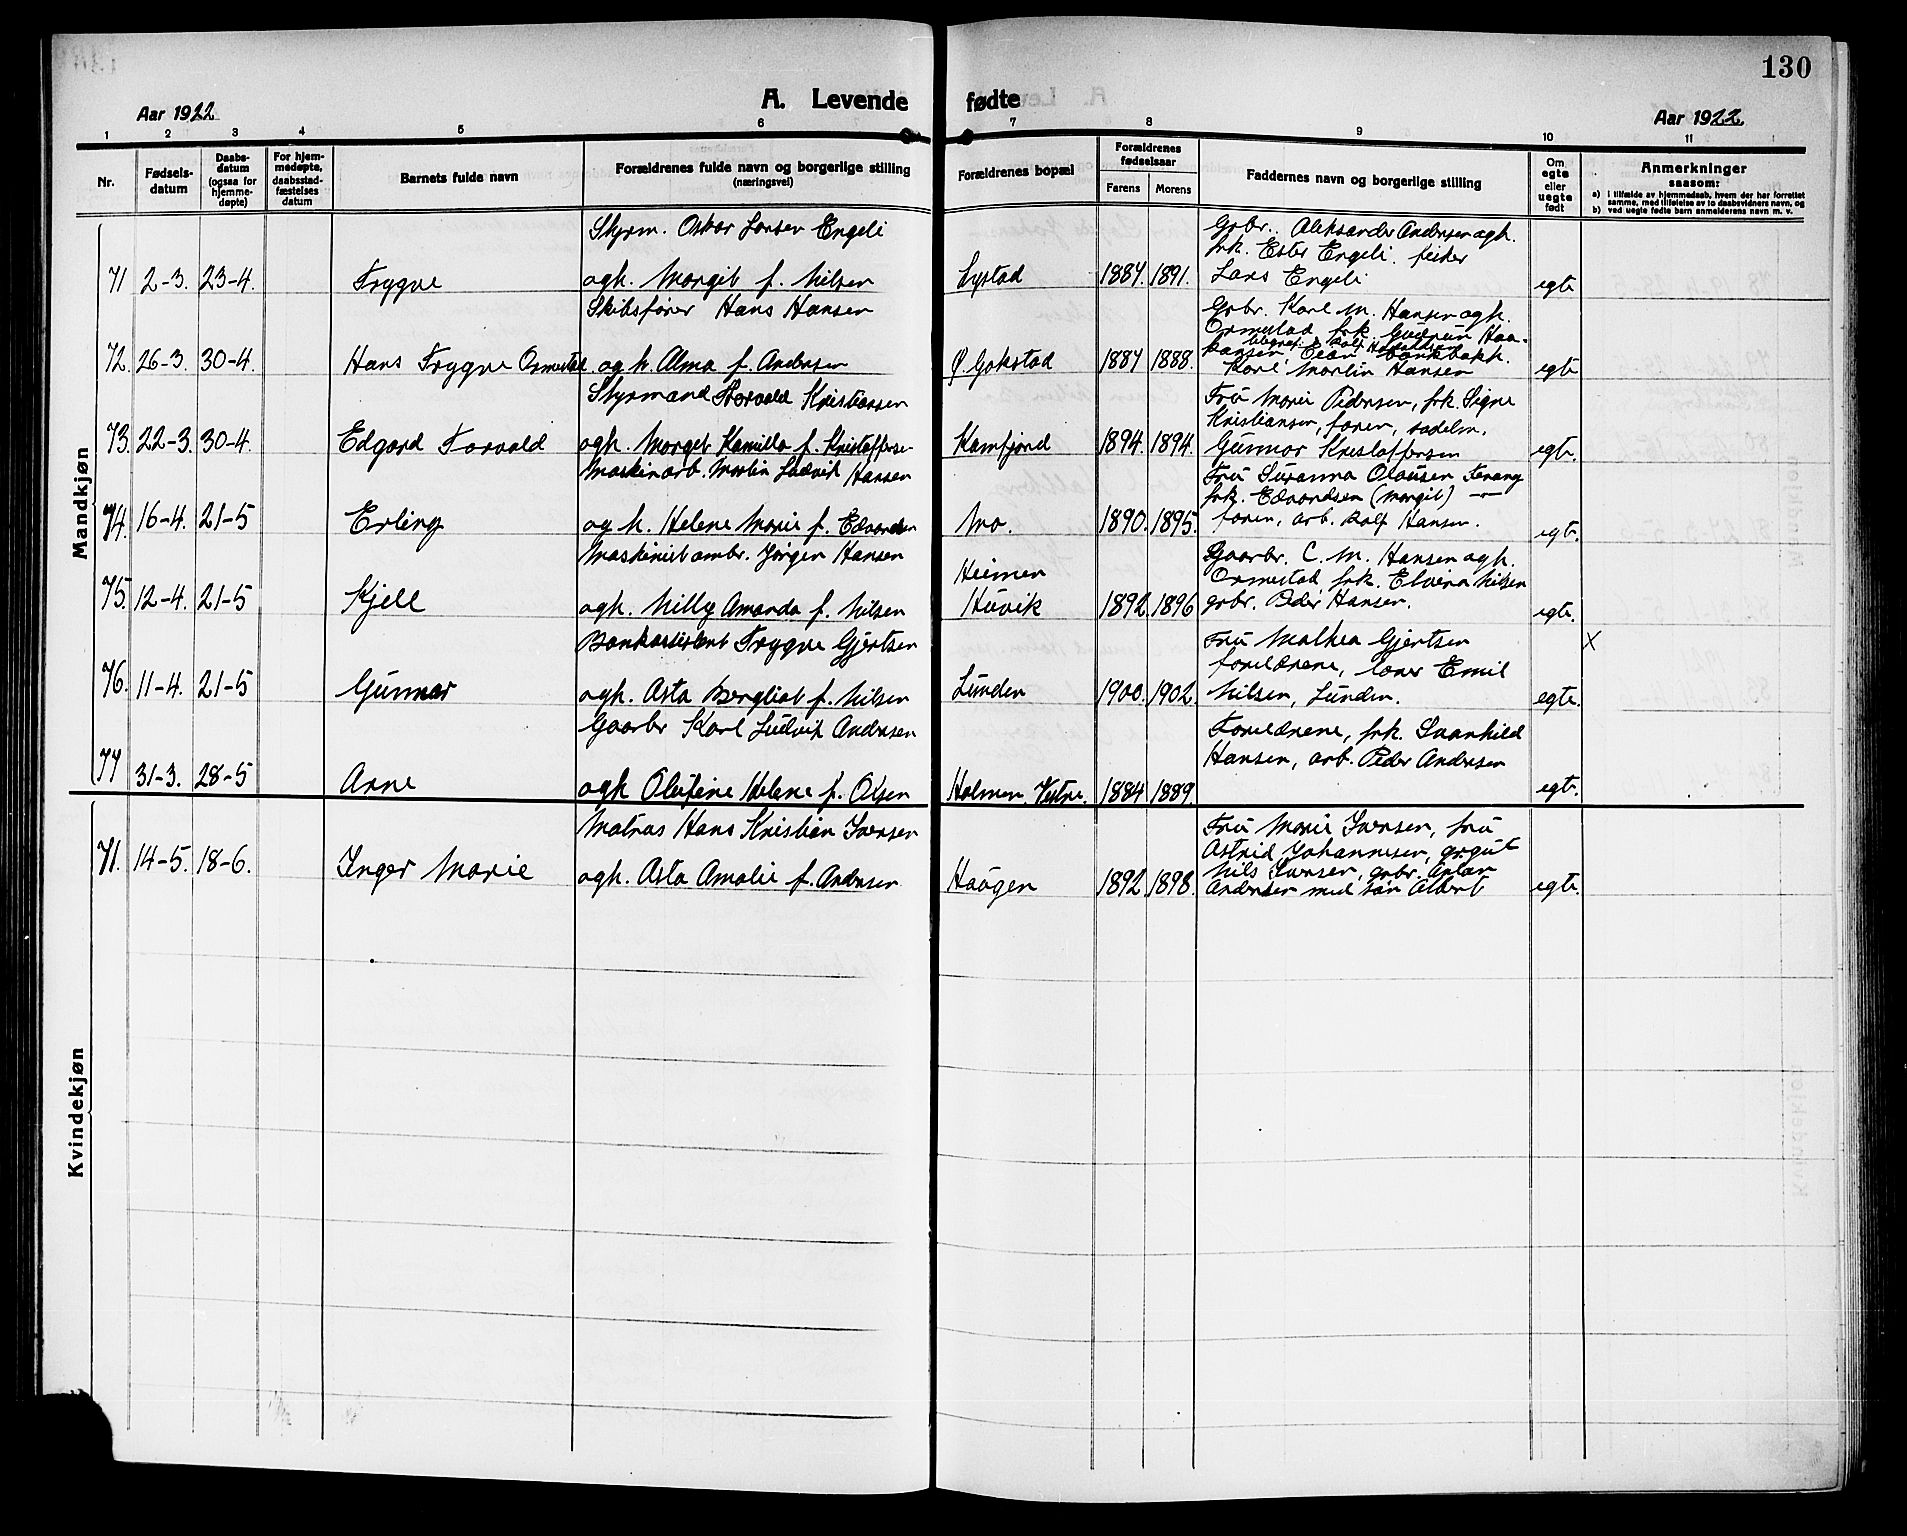 130
Aar 1922
A. Levende fødte
Aar 1922
1 2 3 4 5 6 7 8 9 10 11
Nr.
Fødsels-
datum
Daabs-
datum
(ogsaa for
hjemme-
døpte)
For hjem-
medøpte,
daabsstad-
fæstelses
datum
Barnets fulde navn
Forældrenes fulde navn og borgerlige stilling
(næringsvei)
Forældrenes bopæl
Forældrenes
fødselsaar
Farens Morens
Faddernes navn og borgerlige stilling
Om
egte
eller
uegte
født
Anmerkninger
saasom:
a) i tilfælde av hjemmedaab, hvem der har forrettet
samme, med tilføielse av to daabsvidners navn, og
b) ved uegte fødte barn anmelderens navn m. v.
Mandkjøn
71 2-3. 23-4. Trygve
Styrm. Oskar Larsen Engeli
agh. Margit f. Nilsen
Lystad 1887. 1891.
Grbr. Aleksander Andersen agh.
frk. Ester Engeli. fisker
Lars Engeli
egte
72. 26-3. 30-4. Hans Trygve Ormestad
Skibsfører Hans Hansen
agh. Alma f. Andersen
Ø Gokstad 1887 1888.
Grbr. Karl M. Hansen agh.
Ormestad frk. Gudrun Haa-
kansen,
Karl Martin Hansen
egte
73. 22-3. 30-4. Edgard Torvald
Styrmand Torvald Kristiansen
agh. Marget Kamilla f. Kristoffersen
Kamfjord 1894. 1894.
Fru Marie Pedersen, frk. Signe
Kristiansen, faren, sadelm.
Gunnar Kristoffersen
egte.
74. 16-4. 21-5 Erling
Maskinarb. Martin Ludvik Hansen
agh. Helene Marie f. Edvardsen
Mo. 1890. 1895.
Fru Susanna Olausen
frk. Edvardsen (Margit) —
faren, arb. Ralf Hansen.
egte.
75. 12-4. 21-5 Kjell
Maskinist ambr. Jørgen Hansen
agh. Nilly Amanda f. Nilsen
Heimen
Huvik 1892. 1896
Gaarbr. C. M. Hansen agh.
Ormestad frk. Elvina Nilsen
grbr. Peder Hansen.
egte.
76. 11-4. 21-5 Gunnar
Bankassistent Trygve Gjertsen
agh. Asta Bergliot f. Nilsen
Lunden 1900. 1902.
Fru Mathea Gjertsen
forældrene, Emil
Nilsen, Lunden.
egte.
X
77 31-3. 28-5 Arne
Gaarbr Karl Ludvik Andersen
agh Olufine Helene f. Olsen
Holmen Vestre. 1884 1889.
Forældrene, frk. Svanhild
Hansen, arb. Peder Andersen
egte.
Kvindekjøn
71. 14-5. 18-6. Inger Marie
Matros Hans Kristian Iversen
agh. Asta Amalie f. Andersen
Haugen 1892. 1898.
Fru Marie Iversen, fru
Astrid Johannesen, grgut
Nils Iversen, grbr. Anton
Andersen med søn Albert
egte.